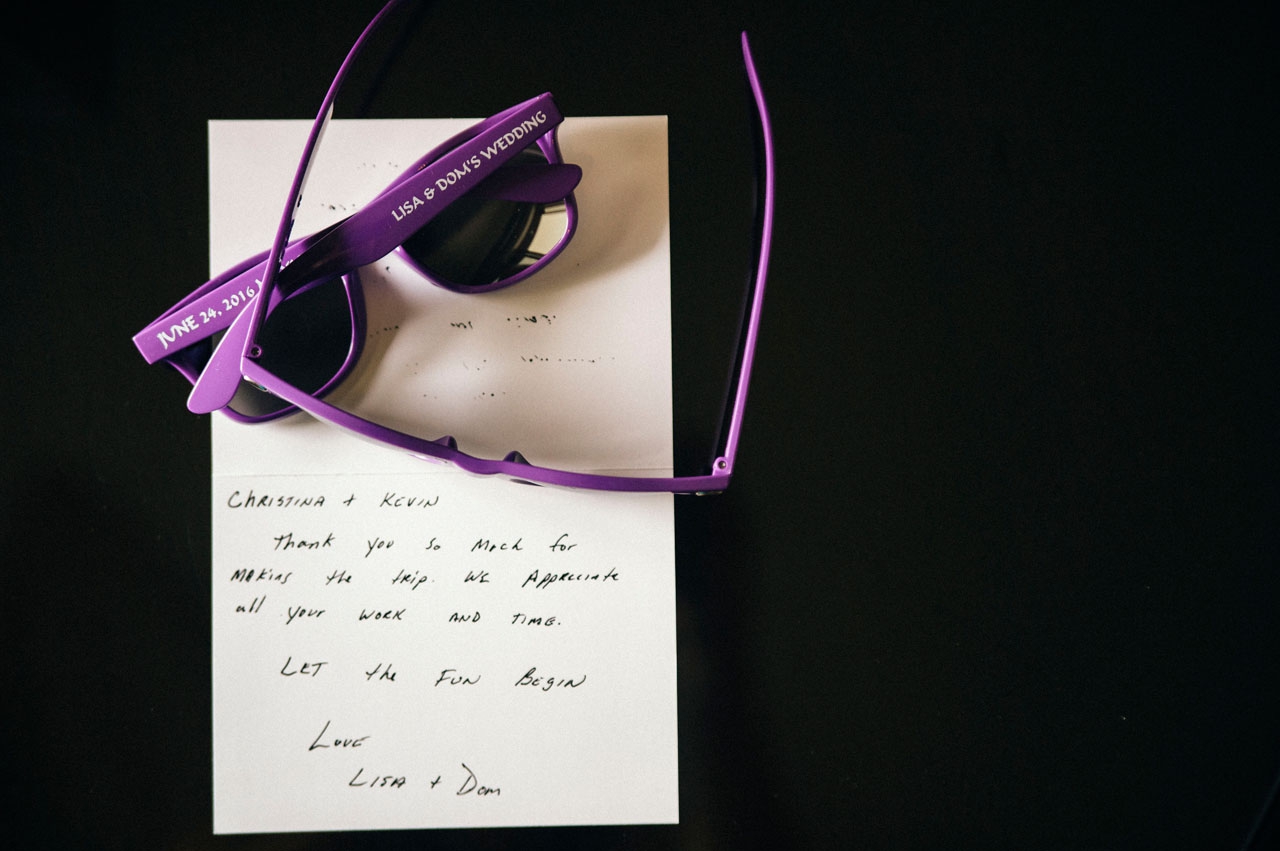 LISA & DOM'S WEDDING
JUNE 24, 2016
Christina + Kevin
Thank you so much for
making the trip. We appreciate
all your work and time.
Let the Fun Begin
Love
Lisa + Dom